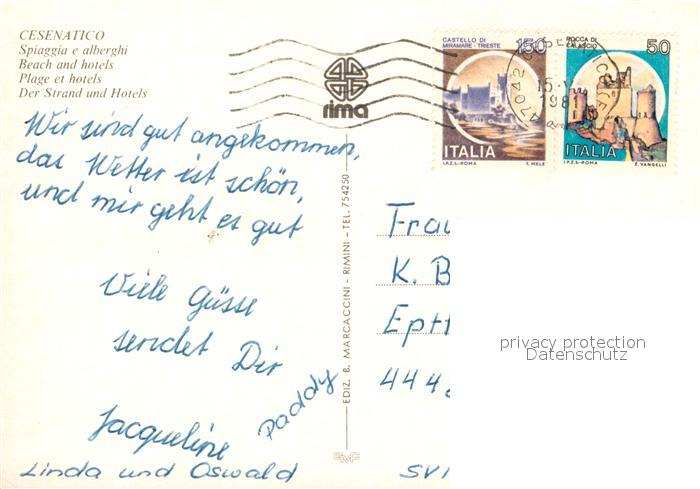 CESENATICO
Spiaggia e alberghi
Beach and hotels
Plage et hotels
Der Strand und Hotels
rima
CASTELLO DI
MIRAMARE - TRIESTE
150
ITALIA
I.P.Z.S.-ROMA T. MELE
ROCCA DI
CALASCIO
50
ITALIA
I.P.Z.S.-ROMA E. VANGELLI
47042
15
Wir sind gut angekommen,
das Wetter ist schön,
und mir geht es gut
Viele Güsse
sendet Dir
Jacqueline
Paddy
Linda und Oswald
EDIZ. B. MARCACCINI - RIMINI - TEL. 754250
Frau
K. B
Ept
444
privacy protection
Datenschutz